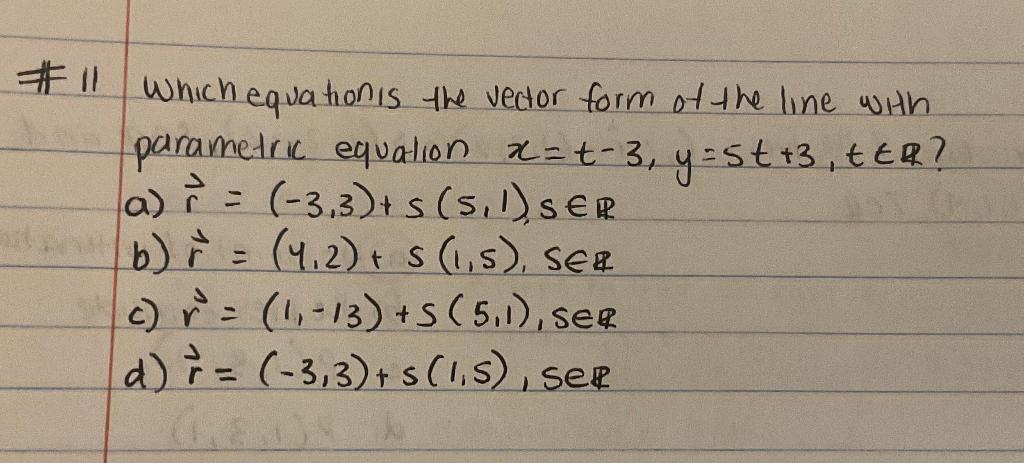 #11 Which equation is the vector form of the line with
parametric equation x=t-3, y=5t+3, t∈ℝ?
a) r⃗ = (-3,3)+s(5,1), s∈ℝ
b) r⃗ = (4,2)+s(1,5), s∈ℝ
c) r⃗ = (1,-13)+s(5,1), s∈ℝ
d) r⃗ = (-3,3)+s(1,5), s∈ℝ